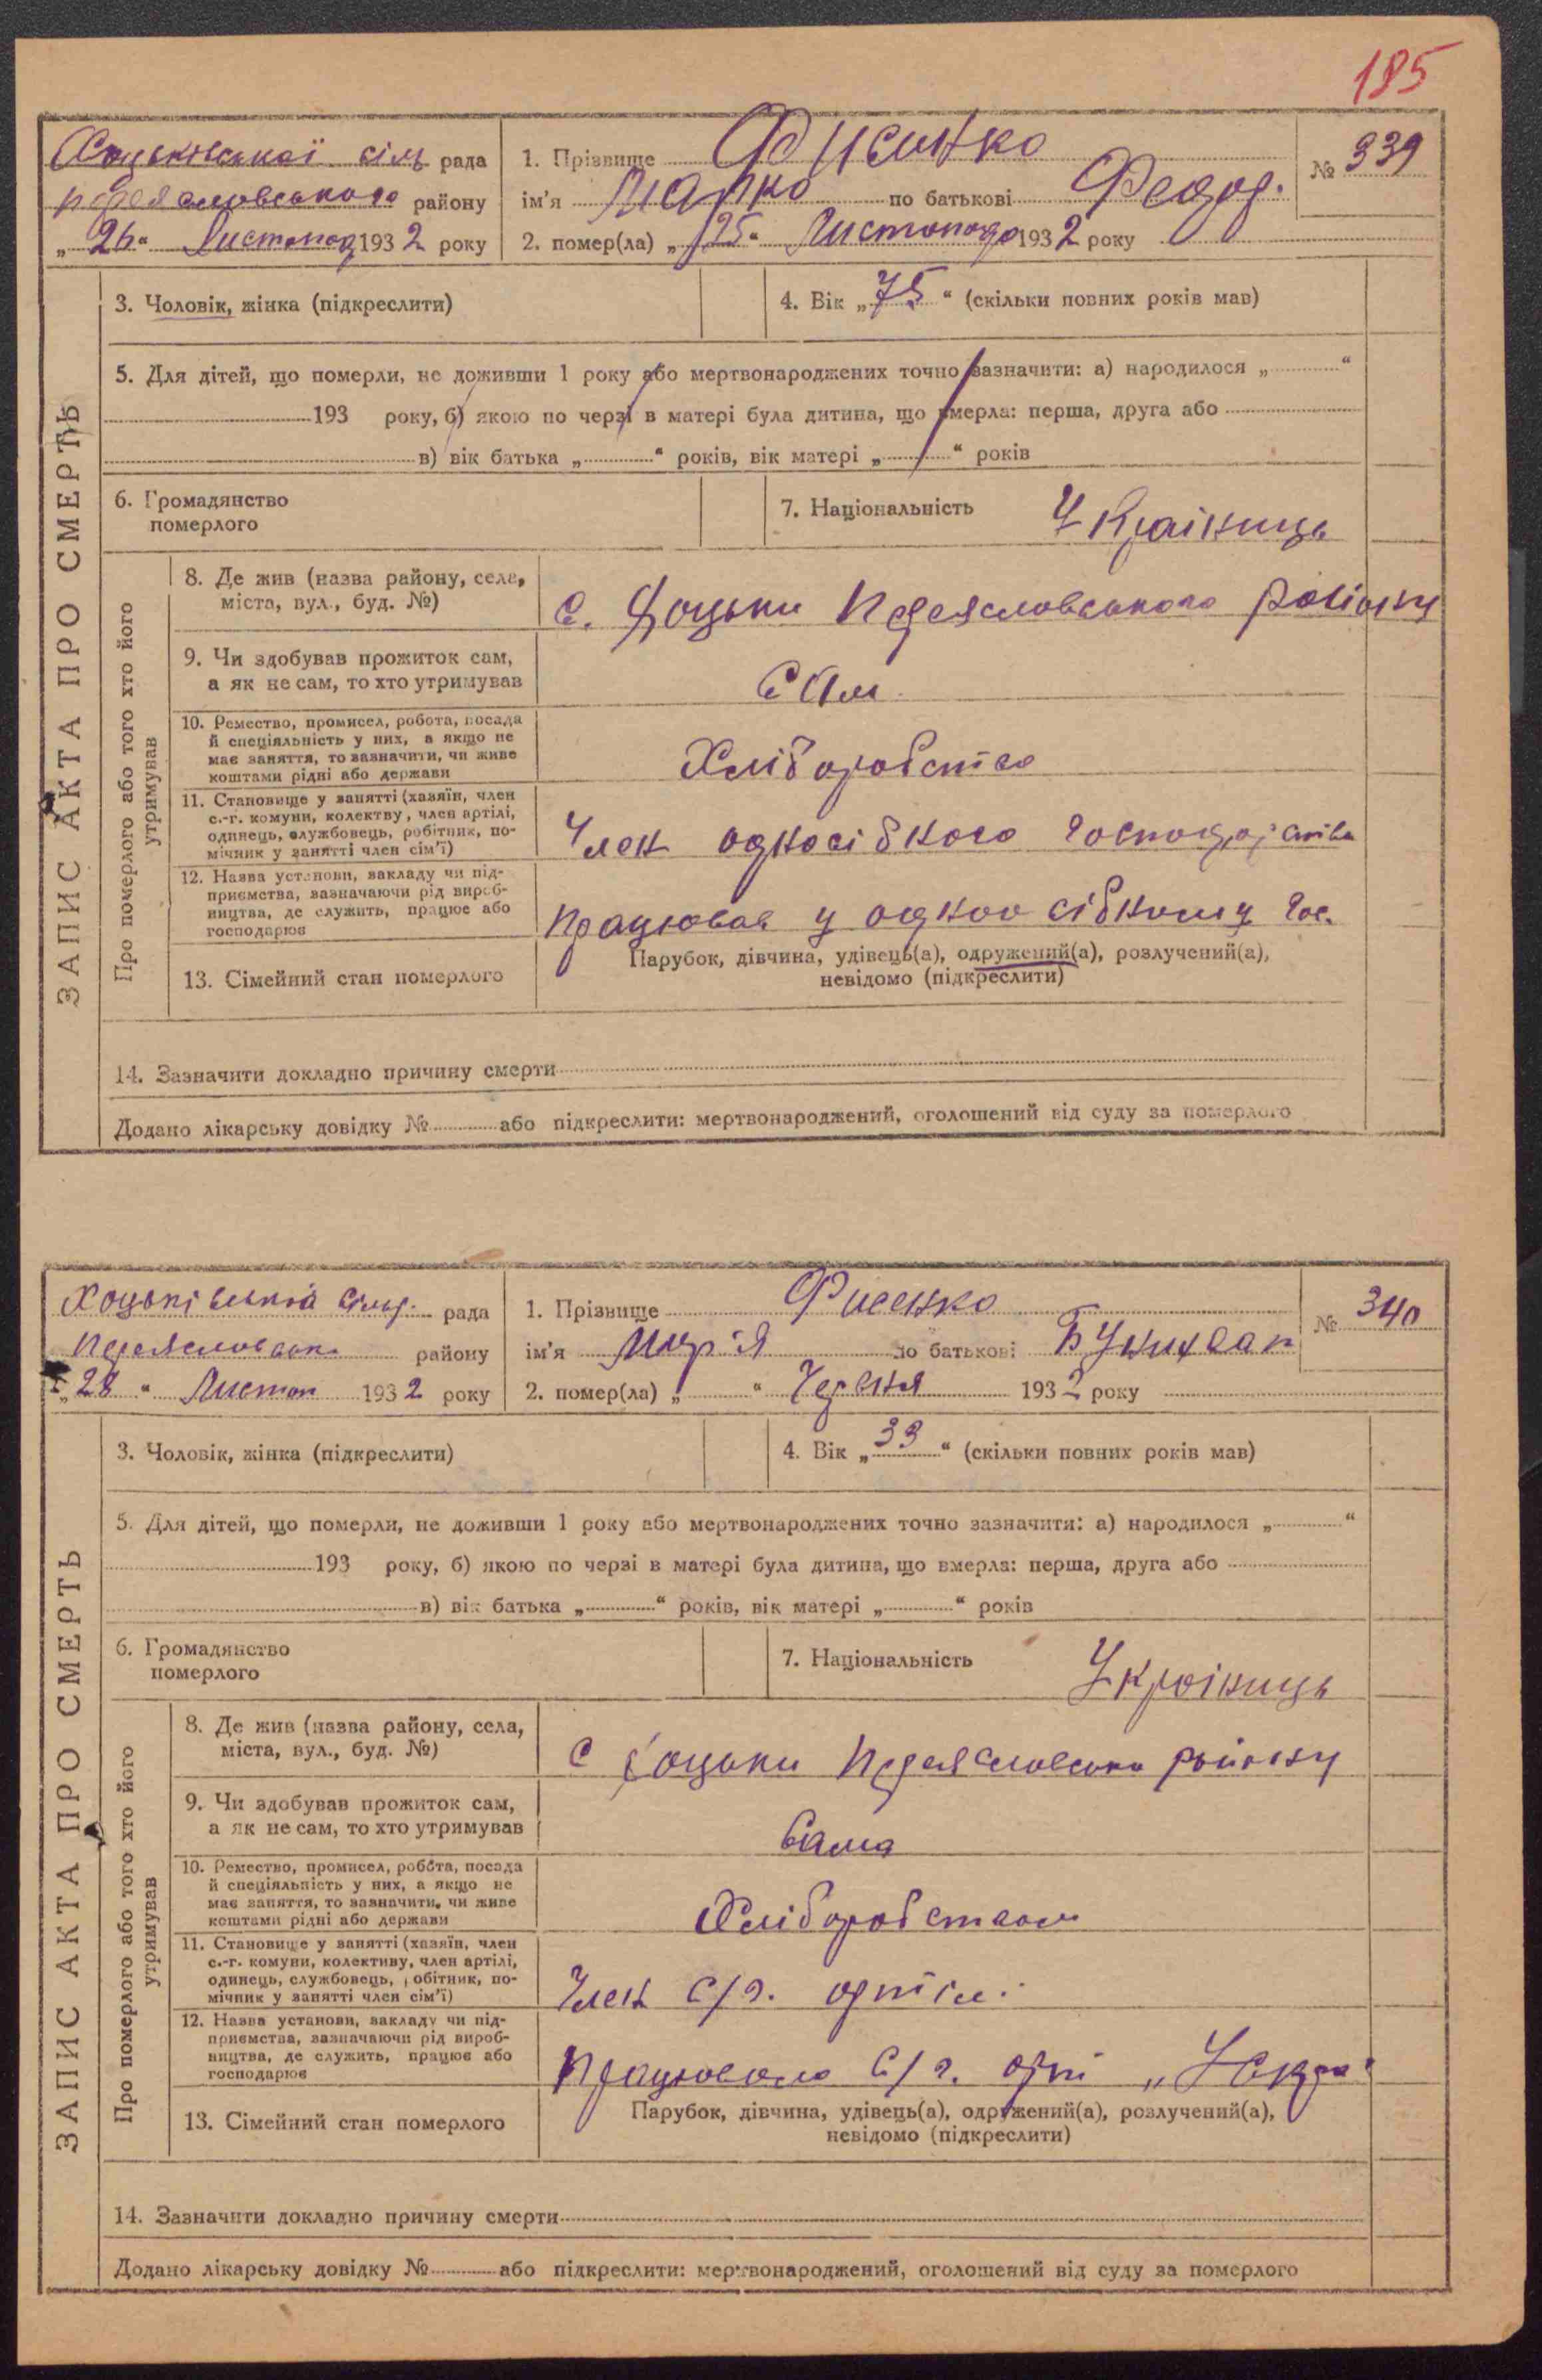 185
Хоцьківської сіль рада
Переясловського району
„ 26 “ Листопад 1932 року
1. Прізвище Фисенко
№ 339
ім'я Марко по батькові Федор.
2. помер(ла) „ 25 “ Листопада 1932 року
ЗАПИС АКТА ПРО СМЕРТЬ
3. Чоловік, жінка (підкреслити)
4. Вік „ 75 “ (скільки повних років мав)
5. Для дітей, що померли, не доживши 1 року або мертвонароджених точно зазначити: а) народилося „ “
193 року, б) якою по черзі в матері була дитина, що вмерла: перша, друга або
в) вік батька „ “ років, вік матері „ “ років
6. Громадянство
померлого
7. Національність Украінець
Про померлого або того хто його
утримував
8. Де жив (назва району, села,
міста, вул., буд. №)
с. Хоцьки Переясловського району
9. Чи здобував прожиток сам,
а як не сам, то хто утримував
Сам
10. Ремество, промисел, робота, посада
й спеціяльність у них, а якщо не
має заняття, то зазначити, чи живе
коштами рідні або держави
Хліборобство
11. Становище у занятті (хазяїн, член
с.-г. комуни, колектву, член артілі,
одинець, службовець, робітник, по-
мічник у занятті член сім'ї)
Член односібного господарства
12. Назва установи, закладу чи під-
приємства, зазначаючи рід вироб-
ництва, де служить, працює або
господарює
Працював у одноосібному гос.
13. Сімейний стан померлого
Парубок, дівчина, удівець(а), одружений(а), розлучений(а),
невідомо (підкреслити)
14. Зазначити докладно причину смерти
Додано лікарську довідку № або підкреслити: мертвонароджений, оголошений від суду за померлого
Хоцьківської сільр. рада
Переясловськ. району
„ 28 “ Листоп 1932 року
1. Прізвище Фисенко
№ 340
ім'я Марія по батькові
2. помер(ла) „ “ Червня 1932 року
ЗАПИС АКТА ПРО СМЕРТЬ
3. Чоловік, жінка (підкреслити)
4. Вік „ 33 “ (скільки повних років мав)
5. Для дітей, що померли, не доживши 1 року або мертвонароджених точно зазначити: а) народилося „ “
193 року, б) якою по черзі в матері була дитина, що вмерла: перша, друга або
в) вік батька „ “ років, вік матері „ “ років
6. Громадянство
померлого
7. Національність Украінець
Про померлого або того хто його
утримував
8. Де жив (назва району, села,
міста, вул., буд. №)
с Хоцьки Переясловськ району
9. Чи здобував прожиток сам,
а як не сам, то хто утримував
Сама
10. Ремество, промисел, робота, посада
й спеціяльність у них, а якщо не
має заняття, то зазначити, чи живе
коштами рідні або держави
Хліборобством
11. Становище у занятті (хазяїн, член
с.-г. комуни, колективу, член артілі,
одинець, службовець, робітник, по-
мічник у занятті член сім'ї)
Член с/г. артіл.
12. Назва установи, закладу чи під-
приємства, зазначаючи рід вироб-
ництва, де служить, працює або
господарює
Працювала с/г. арт „Іскра“
13. Сімейний стан померлого
Парубок, дівчина, удівець(а), одружений(а), розлучений(а),
невідомо (підкреслити)
14. Зазначити докладно причину смерти
Додано лікарську довідку № або підкреслити: мертвонароджений, оголошений від суду за померлого